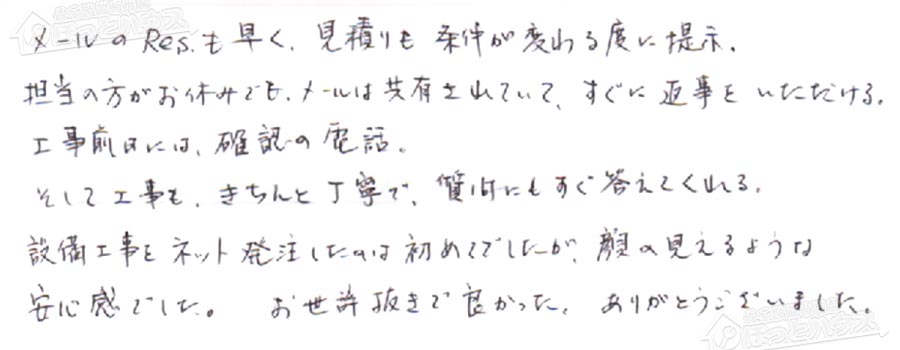 メールのRes.も早く、見積りも条件が変わる度に提示。
担当の方がお休みでも、メールは共有されていて、すぐに返事をいただける。
工事前日には、確認の電話。
そして工事も、きちんと丁寧で、質問にもすぐ答えてくれる。
設備工事をネット発注したのは初めてでしたが、顔の見えるような
安心感でした。 お世辞抜きで良かった。ありがとうございました。